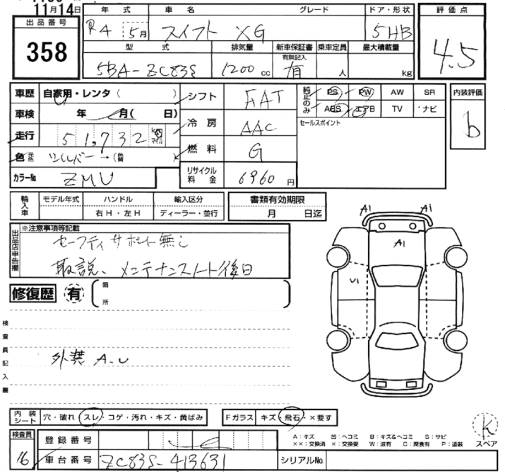 11月14日
出品番号
358
年式 車名 グレード ドア・形状
R4 5月 スイフト XG 5HB
型式 排気量 新車保証書 乗車定員 最大積載量
有無記入
5BA-ZC83S 1200cc 有 人 kg
評価点
4.5
車歴 自家用・レンタ( )
車検 年 月( 日)
走行 51,732
色 シルバー →(
カラーNo ZMU
シフト FAT
冷房 AAC
燃料 G
リサイクル料金 6960円
純正のみ
PS PW AW SR
ABS エアB TV ナビ
セールスポイント
内装評価
b
輸入車
モデル年式 ハンドル 輸入区分
右H・左H ディーラー・並行
書類有効期限
月 日迄
※注意事項等記載
セーフティサポート無し
取説、メンテナンスノート後日
修復歴 有 箇所
検査員記入欄
外装A.U
A1
A1
A1
U1
内装シート 穴・破れ スレ コゲ・汚れ・キズ・黄ばみ
Fガラス キズ・飛石・×要す
A:キズ 凹:ヘコミ B:キズ&ヘコミ S:サビ
××:交換済 ×:交換要 W:波有 C:腐食有 P:塗装
スペア
検査員
16
登録番号
車台番号 ZC83S-413631
シリアルNo